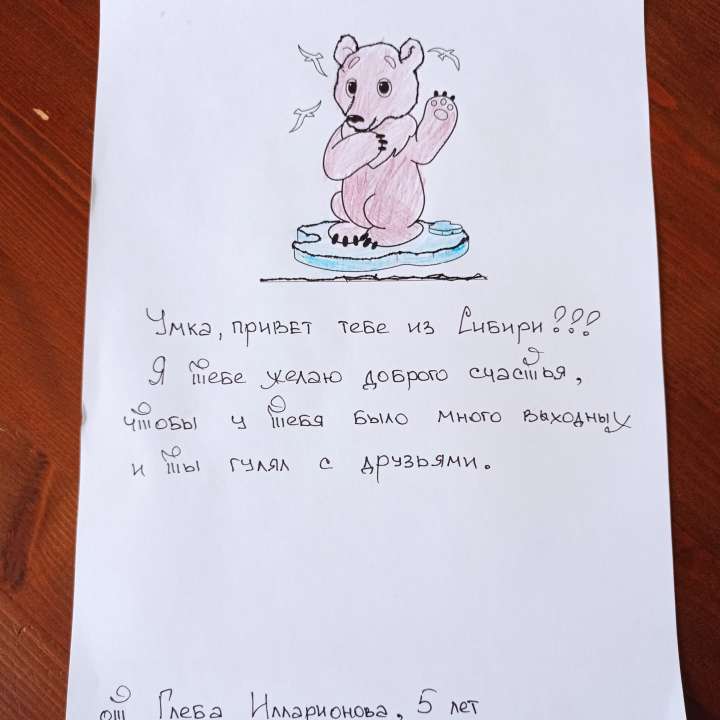 Умка, привет тебе из Сибири???
Я тебе желаю доброго счастья,
чтобы у тебя было много выходных
и ты гулял с друзьями.
от Глеба Илларионова, 5 лет